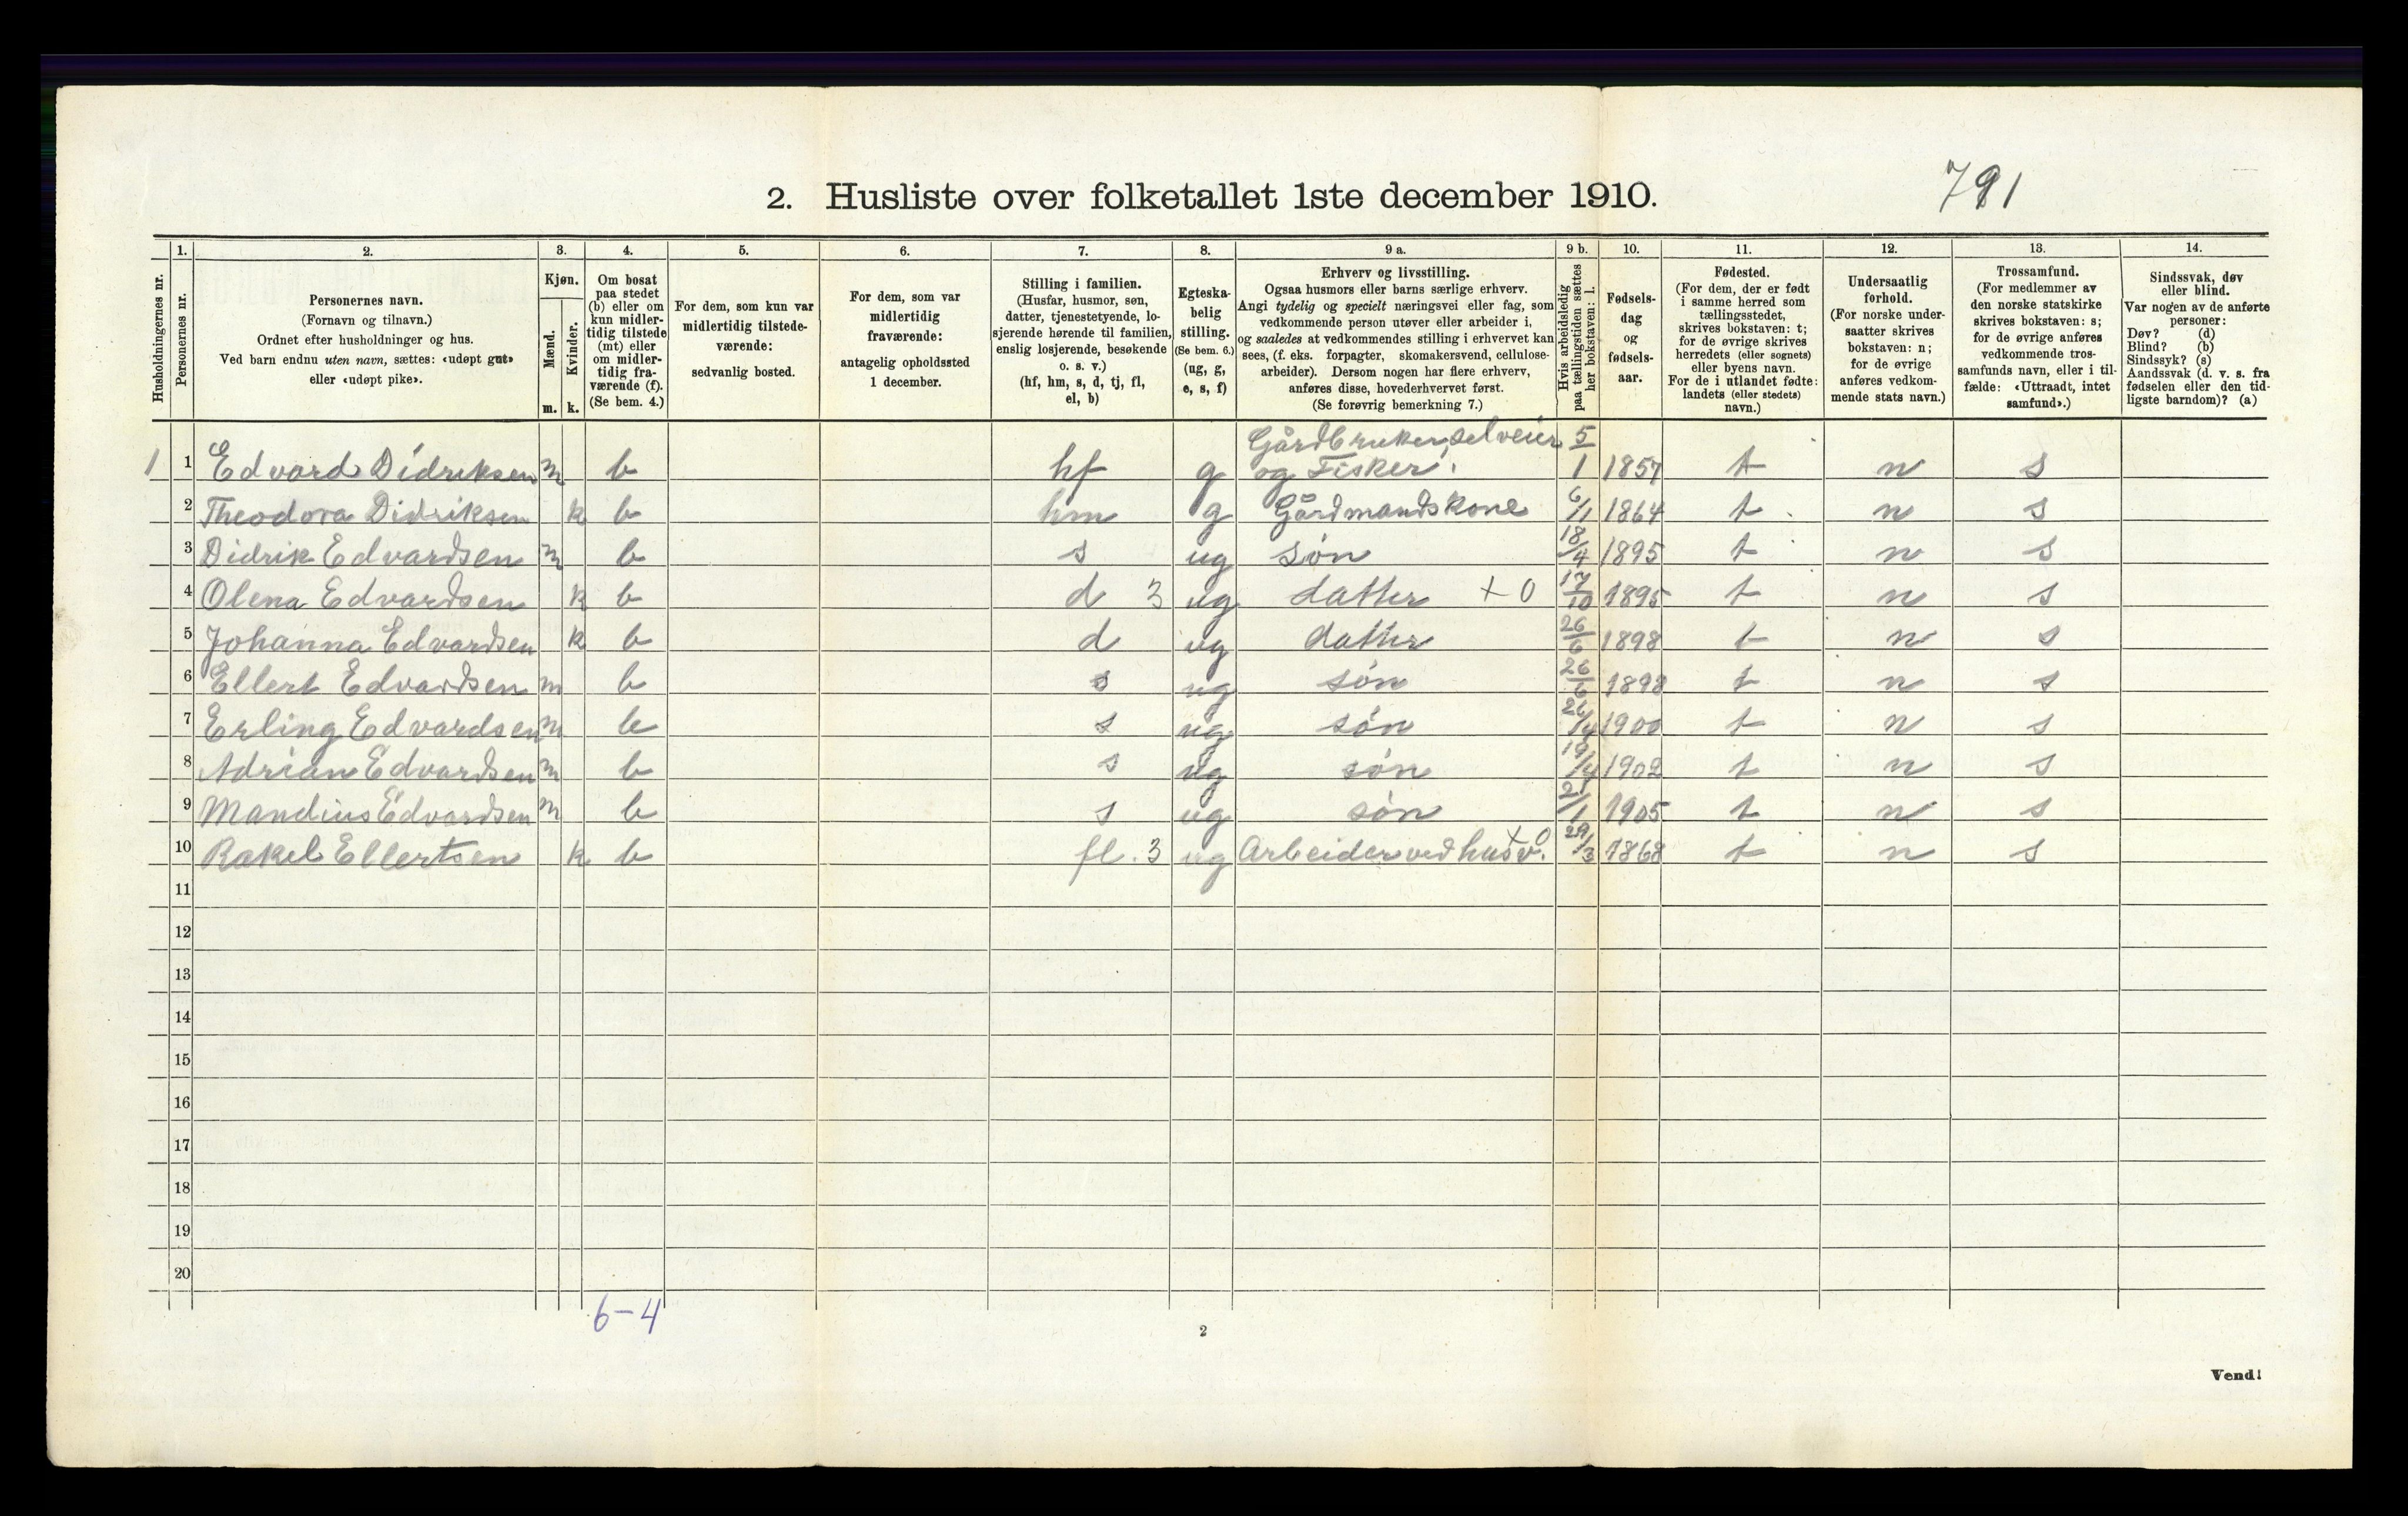 2. Husliste over folketallet 1ste december 1910.
791
1. 2. 3. 4. 5. 6. 7. 8. 9 a. 9 b. 10. 11. 12. 13. 14.
Husholdningernes nr.
Personernes nr.
Personernes navn.
(Fornavn og tilnavn.)
Ordnet efter husholdninger og hus.
Ved barn endnu uten navn, sættes: «udøpt gut»
eller «udøpt pike».
Kjøn.
Mænd.
Kvinder.
m. k.
Om bosat
paa stedet
(b) eller om
kun midler-
tidig tilstede
(mt) eller
om midler-
tidig fra-
værende (f).
(Se bem. 4.)
For dem, som kun var
midlertidig tilstede-
værende:
sedvanlig bosted.
For dem, som var
midlertidig
fraværende:
antagelig opholdssted
1 december.
Stilling i familien.
(Husfar, husmor, søn,
datter, tjenestetyende, lo-
sjerende hørende til familien,
enslig losjerende, besøkende
o. s. v.)
(hf, hm, s, d, tj, fl,
el, b)
Egteska-
belig
stilling.
(Se bem. 6.)
(ug, g,
e, s, f)
Erhverv og livsstilling.
Ogsaa husmors eller barns særlige erhverv.
Angi tydelig og specielt næringsvei eller fag, som
vedkommende person utøver eller arbeider i,
og saaledes at vedkommendes stilling i erhvervet kan
sees, (f. eks. forpagter, skomakersvend, cellulose-
arbeider). Dersom nogen har flere erhverv,
anføres disse, hovederhvervet først.
(Se forøvrig bemerkning 7.)
Hvis arbeidsledig
paa tællingstiden sættes
her bokstaven: l.
Fødsels-
dag
og
fødsels-
aar.
Fødested.
(For dem, der er født
i samme herred som
tællingsstedet,
skrives bokstaven: t;
for de øvrige skrives
herredets (eller sognets)
eller byens navn.
For de i utlandet fødte:
landets (eller stedets)
navn.)
Undersaatlig
forhold.
(For norske under-
saatter skrives
bokstaven: n;
for de øvrige
anføres vedkom-
mende stats navn.)
Trossamfund.
(For medlemmer av
den norske statskirke
skrives bokstaven: s;
for de øvrige anføres
vedkommende tros-
samfunds navn, eller i til-
fælde: «Uttraadt, intet
samfund».)
Sindssvak, døv
eller blind.
Var nogen av de anførte
personer:
Døv? (d)
Blind? (b)
Sindssyk? (s)
Aandssvak (d. v. s. fra
fødselen eller den tid-
ligste barndom)? (a)
Gårdbruker, selveier
1 1 Edvard Didriksen m b hf g og Fisker. 5/1 1857 t n s
2 Theodora Didriksen k b hm g Gårdmandskone 6/11 1864 t n s
3 Didrik Edvardsen m b s ug søn 18/4 1895 t n s
4 Olena Edvardsen k b d 3 ug datter + 0 17/10 1895 t n s
5 Johanna Edvardsen k b d ug datter 26/6 1898 t n s
6 Ellert Edvardsen m b s ug søn 26/6 1898 t n s
7 Erling Edvardsen m b s ug søn 26/4 1900 t n s
8 Adrian Edvardsen m b s ug søn 19/4 1902 t n s
9 Mandius Edvardsen m b s ug søn 1905 t n s
10 Rakel Ellertsen k b fl. 3 ug Arbeider ved husv. + 0 29/3 1868 t n s
11
12
13
14
15
16
17
18
19
20
6-4
2
Vend!